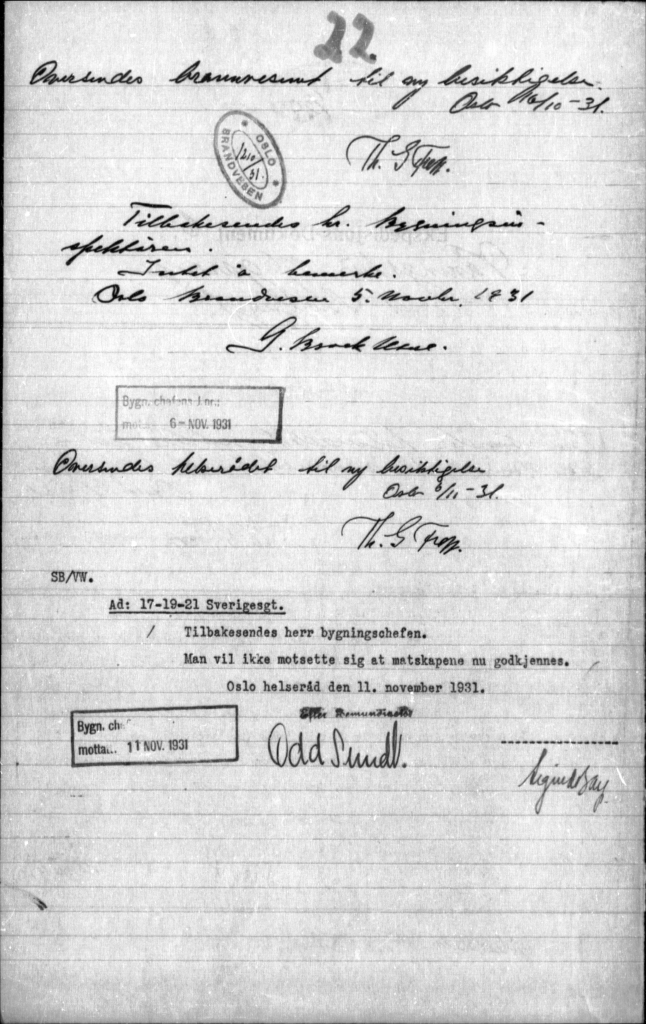 22.
Oversendes brannvesenet til ny besiktigelse.
Oslo 16/10-31.
OSLO
BRANDVESEN
Th. G.
Tilbakesendes hr. bygningsin-
spektören.
Intet å bemerke.
Oslo brandvesen 5. Novbr. 1931
G.
Bygn. chefens Jnr.:
mottat 6-NOV. 1931
Oversendes helserådet til ny besiktigelse
Oslo 6/11-31.
Th. G.
SB/VW.
Ad: 17-19-21 Sverigesgt.
/ Tilbakesendes herr bygningschefen.
Man vil ikke motsette sig at matskapene nu godkjennes.
Oslo helseråd den 11. november 1931.
Bygn. ch
mottat. 11 NOV. 1931
Odd Sundt.